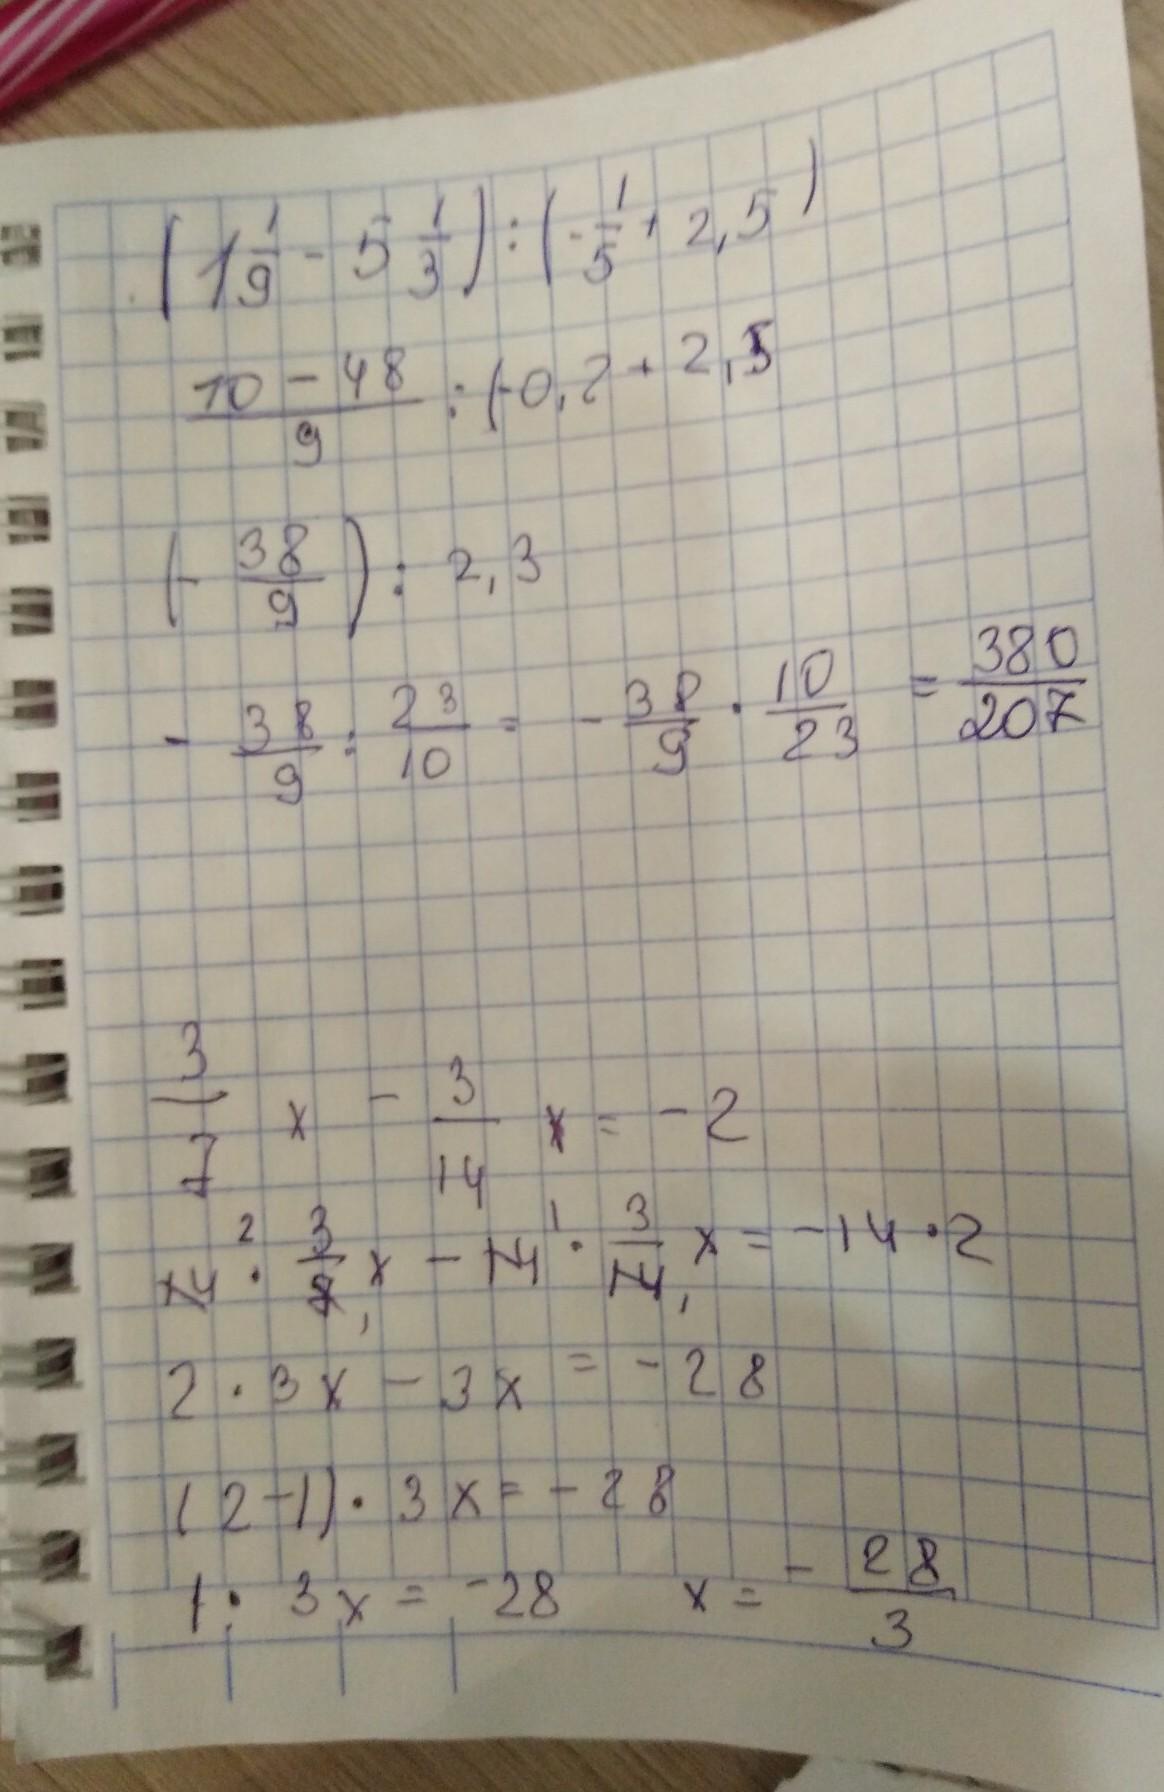 (1 1/9 - 5 1/3) : (-1/5 + 2,5)
(10 - 48)/9 : (-0,2 + 2,5
(- 38/9) : 2,3
- 38/9 : 23/10 = - 38/9 · 10/23 = 380/207
3/7 x - 3/14 x = -2
14² · 3/7₁ x - 14¹ · 3/14₁ x = -14 · 2
2 · 3x - 3x = -28
(2-1) · 3x = -28
1 · 3x = -28 x = - 28/3